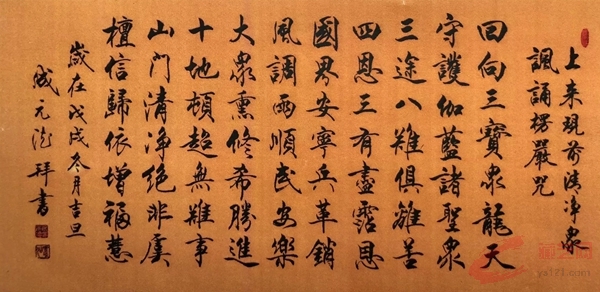 上来现前清净众
諷誦楞嚴咒
回向三寶衆龍天
守護伽藍諸聖衆
三途八難俱離苦
四恩三有盡霑恩
國界安寧兵革銷
風調雨順民安樂
大衆熏修希勝進
十地頓超無難事
山門清净絶非虞
檀信歸依增福慧
歲在戊戌冬月吉旦
成元
拜書